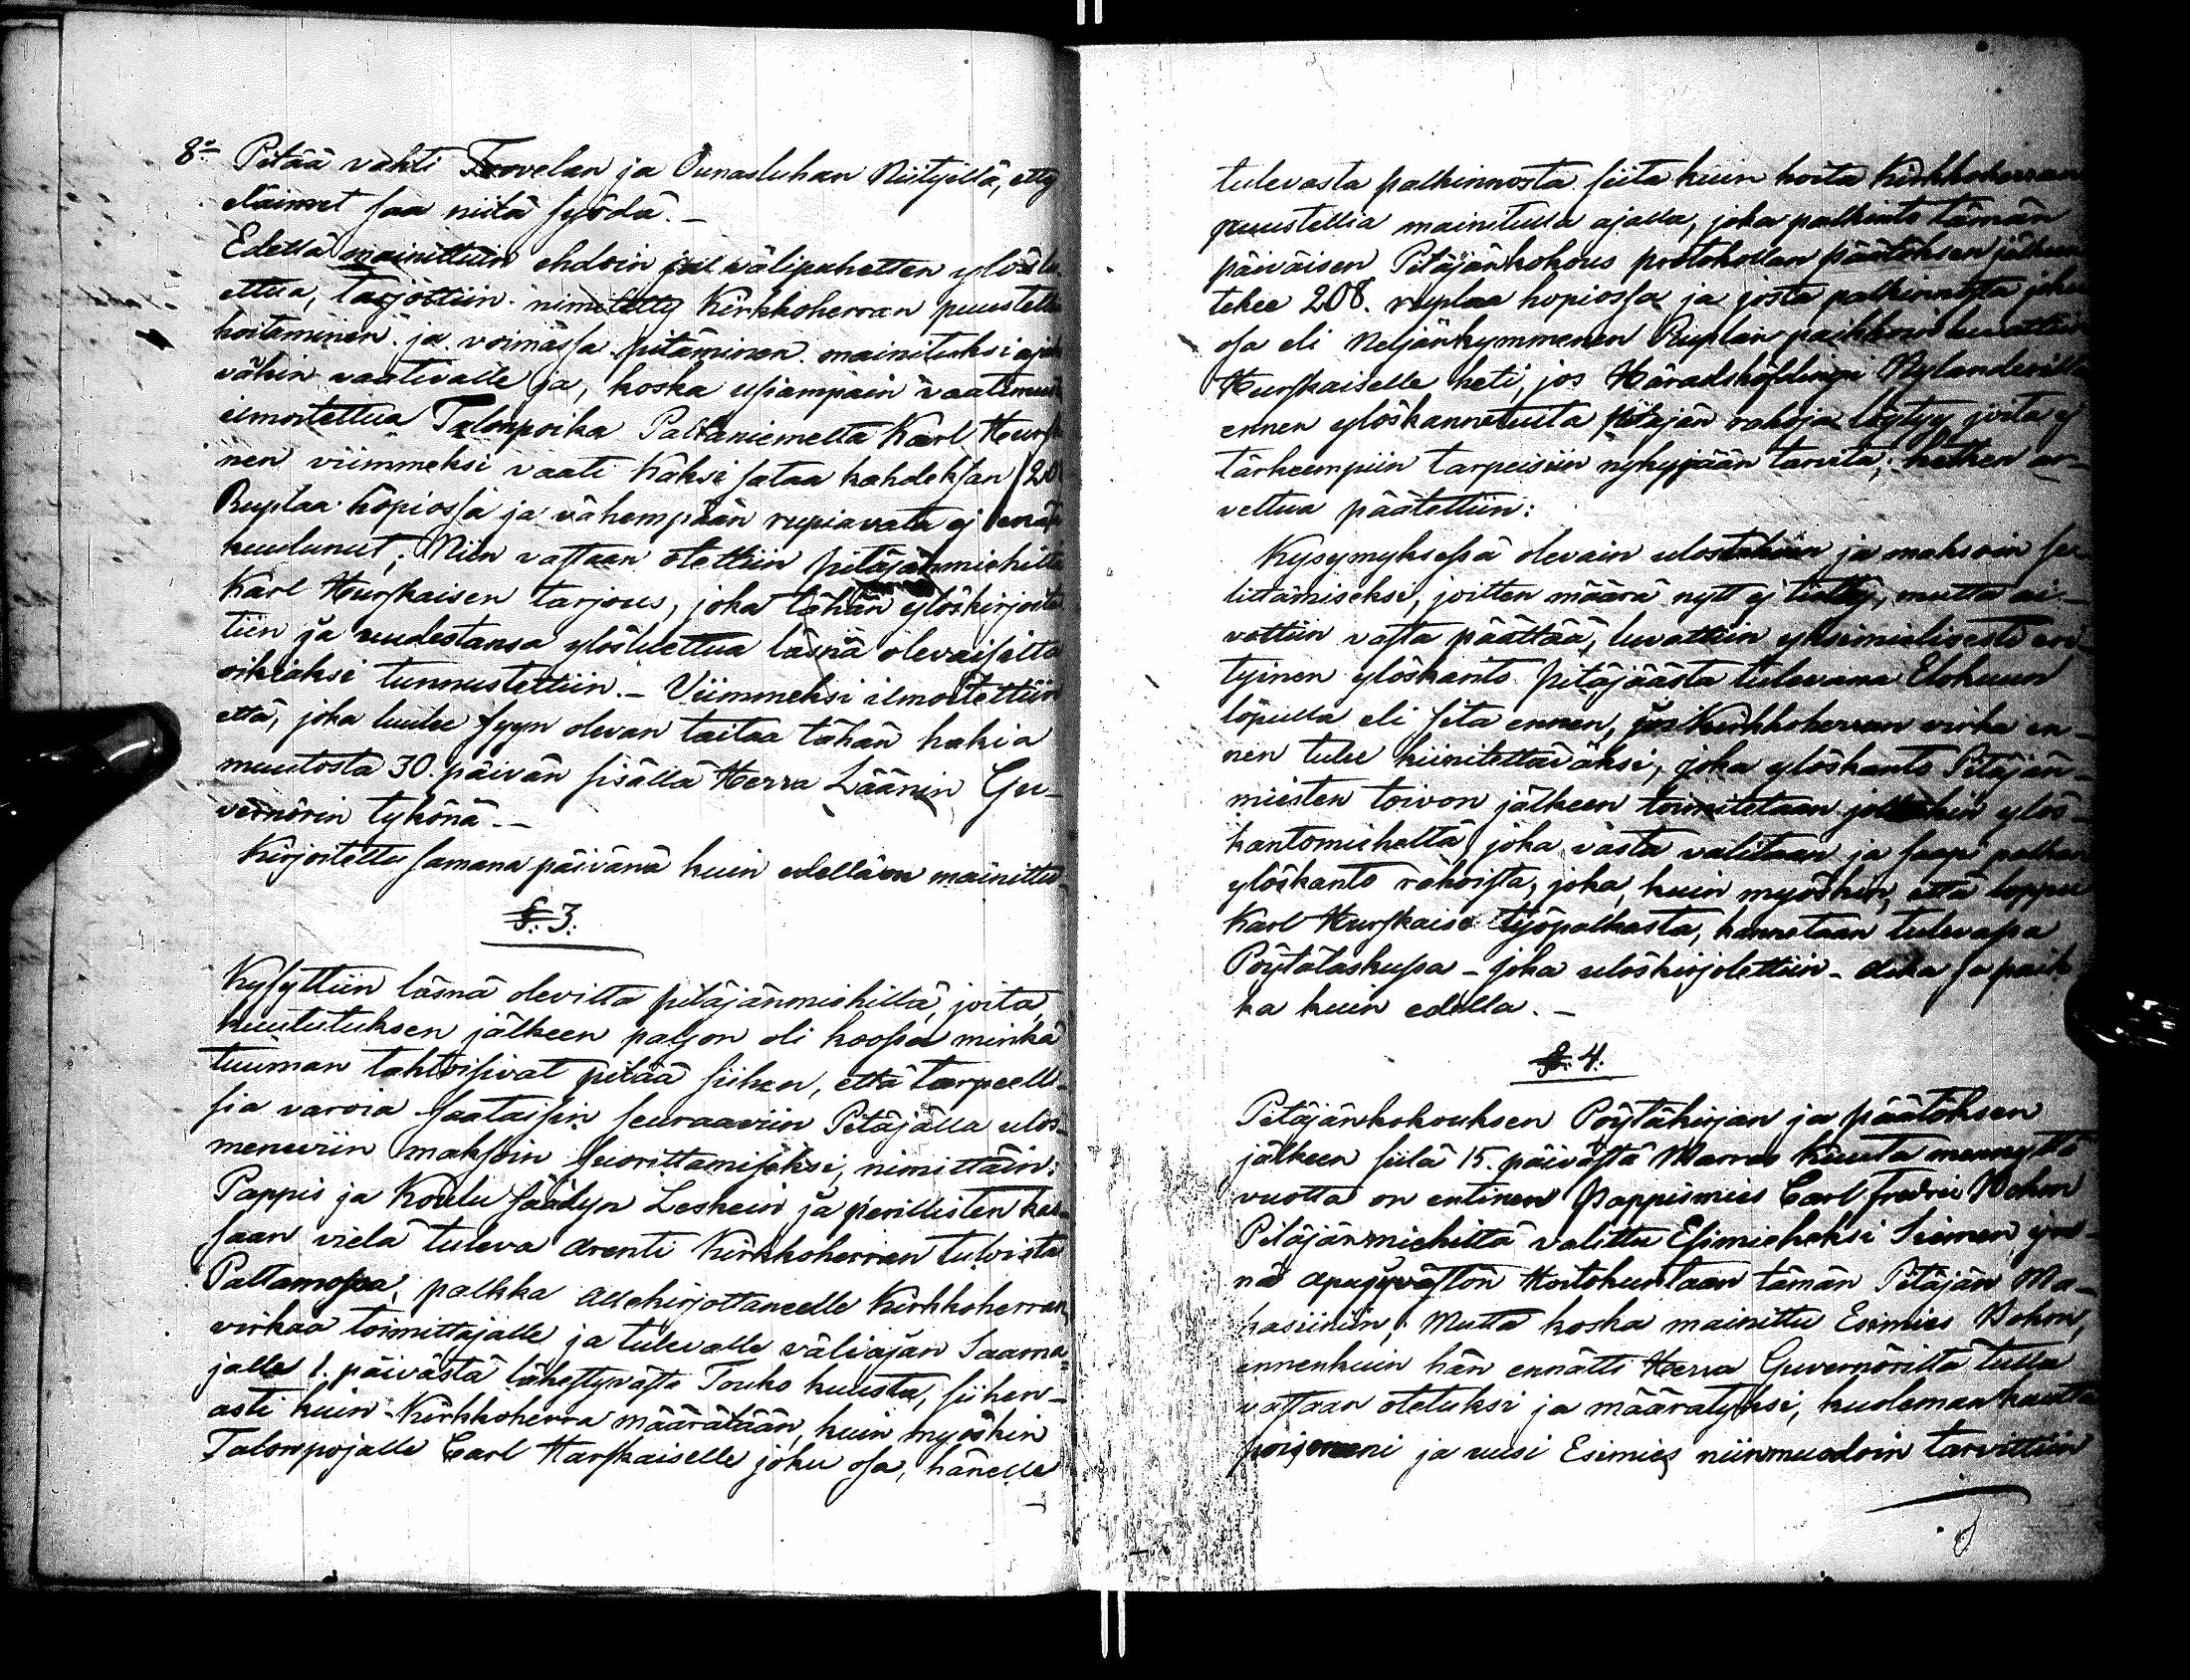 8:o Pitää vahti Tervelan ja Ounasluhan Niityillä, ettej
eläimet saa niitä syödä. —
Edellä mainittuin ehdoin ja välipuhetten ylöslu-
ettua, Tarjottiin nimitetty Kirkkoherran puustellin
hoitaminen ja voimassa pitäminen mainituksi ajaksi
vähin vaativalle ja, koska usiampain vaatimuksi
ilmoitettua Talonpoika Paltaniemeltä Karl Hurskai-
nen viimmeksi vaati Kaksi sataa kahdeksan (208
Ruplaa hopiossa ja vähempään rupiavata ej enää
kuulunut; Niin vastaan otettiin pitäjänmiehiltä
Karl Hurskaisen tarjous, joka tähän ylöskirjoitet-
tiin ja uudestansa ylösluettua läsnä olevaisilta
oikiaksi tunnustettiin. — Viimmeksi ilmoitettiin
että, joka luulee syyn olevan taitaa tähän hakia
muutosta 30. päivän sisällä Herra Läänin Gu-
vernörin tykönä. —
Kirjoitettu samana päivänä kuin edellä on mainittu.
§. 3.
Kysyttiin läsnä olevilta pitäjänmiehillä, joita
kuulutuksen jälkeen paljon oli koossa minkä
tuuman tahtoisivat pitää siihen, että tarpeelli-
sia varoja saataisiin seuraaviin Pitäjällä ulos-
meneviin maksoin suorittamiseksi, nimittäin:
Pappis ja Koulu säädyn Leskein ja perillisten kas-
saan vielä tuleva arenti Kirkkoherran tuloista
Paltamossa, palkka allekirjottaneelle Kirkkoherran
virkaa toimittajalle ja tulevalle väliajan Saarna-
jalle 1. päivästä lähestyvästä Touko kuusta, siihen-
asti kuin Kirkkoherra määrätään, kuin myöskin
Talonpojalle Carl Hurskaiselle joku osa, hänelle
tulevasta palkinnosta siitä kuin hoita Kirkkoherran
puustellia mainitulla ajalla, joka palkinto tämän
päiväisen Pitäjänkokous protokollan päätöksen jälkeen
tekee 208. ruplaa hopiossa ja josta palkinnosta joku
osa eli Neljänkymmenen Ruplan paikkoin luvattiin
Hurskaiselle heti, jos Häradshöfdingi Nylanderilla
ennen ylöskannetuita Pitäjän rahoja löytyy joita ej
tärkeempiin tarpeisiin nykyjään tarvita; hetken ar-
veltua päätettiin:
Kysymyksessä olevain ulostekoin ja maksoin su-
littämiseksi, joitten määrä nytt ej tietty, mutta ai-
vottiin vasta päättää, luvattiin yksimielisesti eri-
tyinen ylöskanto Pitäjäästä tulevana Elokuun
lopulla eli sitä ennen, jos Kirkkoherran virka en-
nen tulee kiinitettäväksi, joka ylöskanto Pitäjän-
miesten toivon jälkeen toimitetaan jollakin ylös-
kantomieheltä joka västa valitaan ja saapi palkan
ylöskanto rahoista, joka, kuin myöskin, että loppu
Karl Hurskaise työpalkasta, kannetaan tulevassa
Pöytälaskussa — joka uloskirjotettiin — aika ja paik-
ka kuin edellä. —
§. 4.
Pitäjänkokouksen Pöytäkirjan ja päätöksen
jälkeen siitä 15. päivästä Marras kuuta mennyttä
vuotta on entinen Pappismies Carl Fredric Wohon
Pitäjänmiehiltä valittu Esimieheksi Siemen jyvä-
nä apujyvästön Hoitokuntaan tämän Pitäjän Ma-
kasiiniin; Mutta koska mainittu Esimies Wohon,
ennenkuin hän ennätti Herra Guvernöriltä tulla
vastaan otetuksi ja määrätyksi, kuoleman kautta
pois meni ja uusi Esimies niinmuodoin tarvittiin